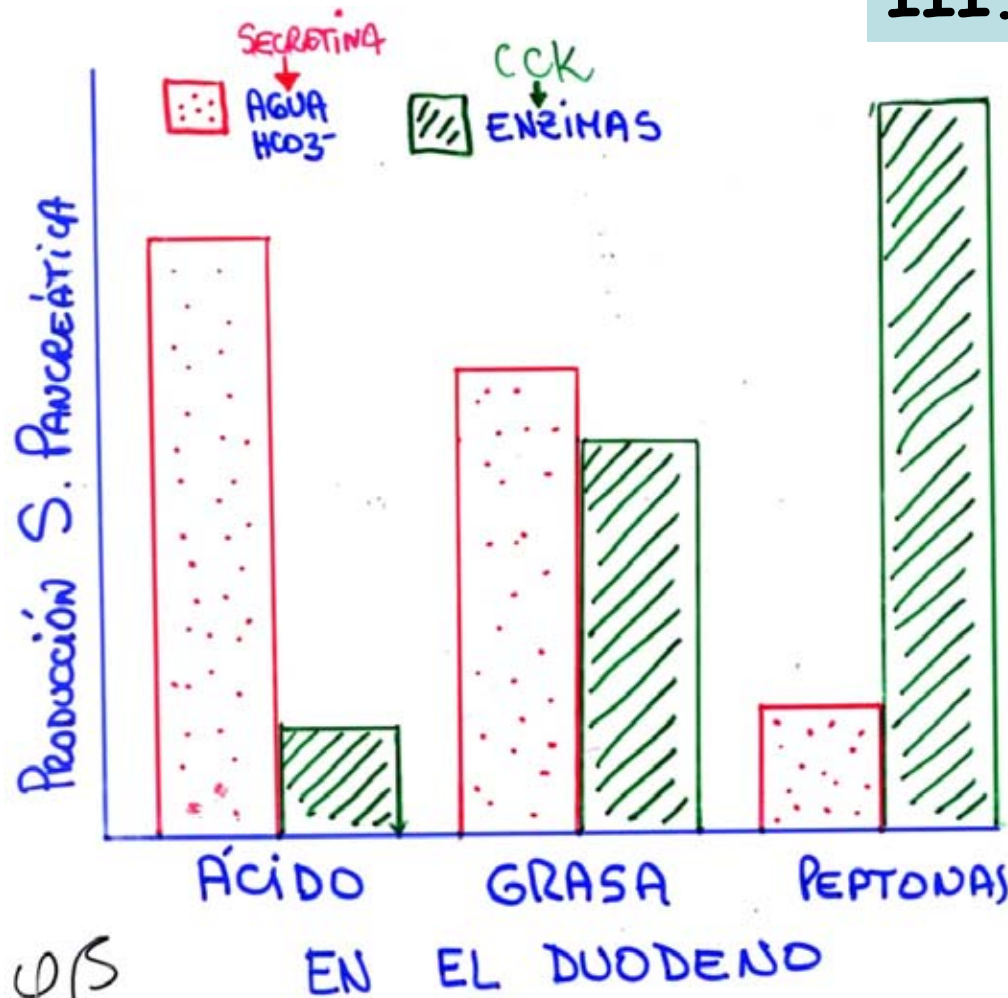 III.
SECRETINA
AGUA
HCO3-
CCK
ENZIMAS
PRODUCCIÓN S. PANCREÁTICA
ÁCIDO
GRASA
PEPTONAS
EN EL DUODENO